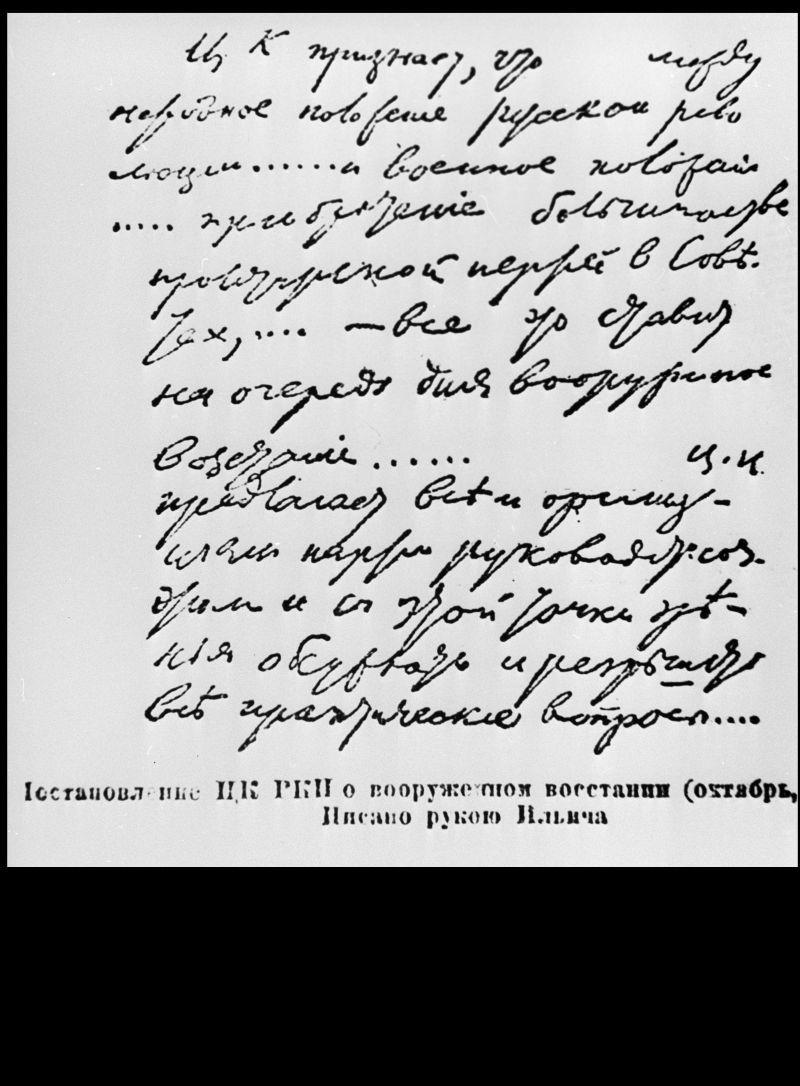 Ц К признает, что между
народное положение русской рево
люции......и военное положение
..... приобретение большинства
пролетарской партией в Совѣ-
тах,.... — все это ставит
на очередь дня вооруженное
возстаніе...... Ц.К.
предлагает всѣм организ-
циям партии руководиться
этим и с этой точки зрѣ-
нія обсуждать и разрѣшать
всѣ практическіе вопросы....
Постановление ЦК РКП о вооруженном восстании (октябрь,
Писано рукою Ильича